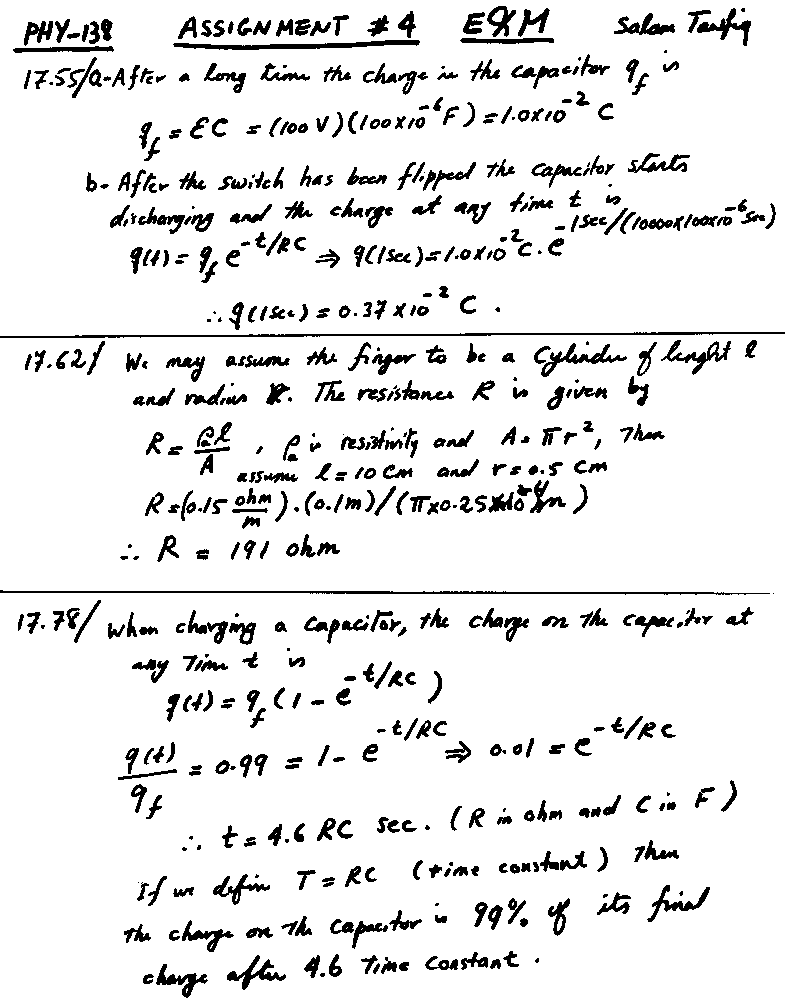 PHY-138 ASSIGNMENT #4 E&M Salam Tawfiq
17.55/a-After a long time the charge in the capacitor q_f is
q_f = ℰC = (100 V)(100x10^-6 F) = 1.0x10^-2 C
b- After the switch has been flipped the capacitor starts
discharging and the charge at any time t is
q(t) = q_f e^-t/RC ⇒ q(1sec) = 1.0x10^-2 C. e^-1sec/(10000x100x10^-6 sec)
∴ q(1sec) = 0.37 x 10^-2 C .
17.62/ We may assume the finger to be a Cylinder of lenght l
and radius r. The resistance R is given by
R = ρₐl/A , ρₐ is resistivity and A = πr², Then
assume l = 10 cm and r = 0.5 cm
R = (0.15 ohm/m).(0.1m)/(πx0.25x10^-4 m)
∴ R = 191 ohm
17.78/ When charging a capacitor, the charge on the capacitor at
any time t is
q(t) = q_f (1 - e^-t/RC)
q(t)/q_f = 0.99 = 1 - e^-t/RC ⇒ 0.01 = e^-t/RC
∴ t = 4.6 RC sec. (R in ohm and C in F)
If we define T = RC (time constant) Then
the charge on the capacitor is 99% of its final
charge after 4.6 Time Constant .